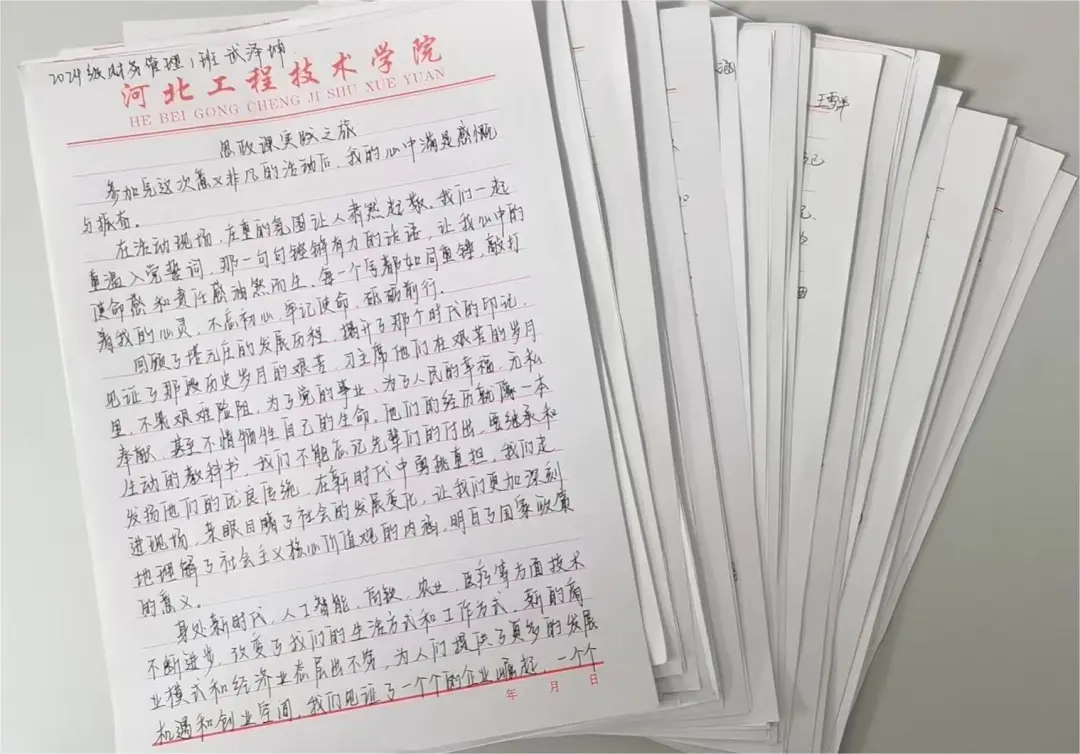 2024级财务管理1班 武泽坤
河北工程技术学院
HE BEI GONG CHENG JI SHU XUE YUAN
思政课实践之旅
参加完这次意义非凡的活动后，我的心中满是感慨
与振奋。
在活动现场，庄重的氛围让人肃然起敬。我们一起
重温入党誓词，那一句句铿锵有力的话语，让我心中的
使命感和责任感油然而生，每一个字都如同重锤，敲打
着我的心灵，不忘初心，牢记使命，砥砺前行。
回顾了塔元庄的发展历程，揭开了那个时代的印记，
见证了那段历史岁月的艰苦，习主席他们在艰苦的岁月
里，不畏艰难险阻，为了党的事业、为了人民的幸福，无私
奉献，甚至不惜牺牲自己的生命，他们的经历就像一本
生动的教科书，我们不能忘记先辈们的付出，要继承和
发扬他们的优良传统，在新时代中勇挑重担，我们走
进现场，亲眼目睹了社会的发展变化，让我们更加深刻
地理解了社会主义核心价值观的内涵，明白了国家政策
的意义。
身处新时代，人工智能、高铁、农业、医疗等方面技术
不断进步，改变了我们的生活方式和工作方式，新的商
业模式和经济业态层出不穷，为人们提供了更多的发展
机遇和创业空间，我们见证了一个个的企业崛起，一个个
年 月 日
涵
王雪
记